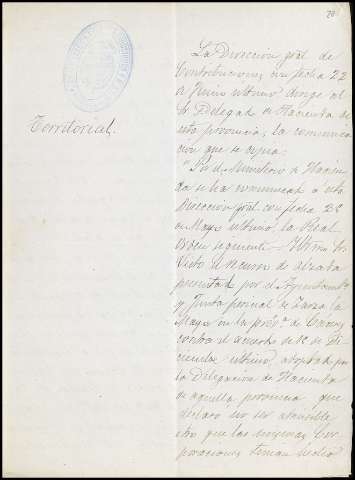 Territorial.
La Direccion gral de
Contribuciones con fecha 22
de Junio ultimo dirige al
Sr Delegado de Hacienda de
esta provincia, la comunica
cion que se copia:
"Por el Ministerio de Hacien
da se ha comunicado a esta
Direccion gral con fecha 28
de Mayo ultimo, la Real
Orden siguiente = Ilmo Sr.
Visto el recurso de alzada
presentado por el Ayuntamto
y Junta pericial de Zarza la
Mayor en la prova de Cáceres,
contra el acuerdo de 12 de Di
ciembre ultimo, adoptado por
la Delegacion de Hacienda
de aquella provincia que
declaró no ser atendible
otro que las mismas Cor
poraciones tenian hecho